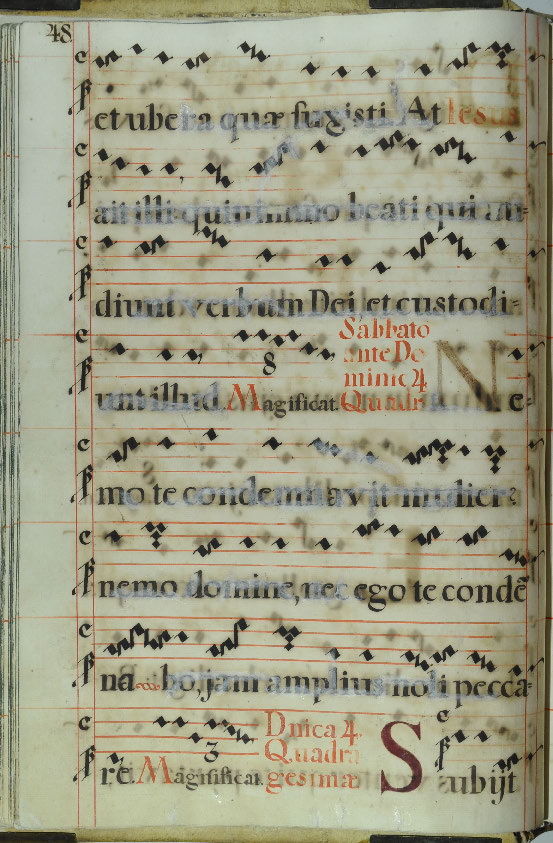 48
et ubera quæ suxisti. At Iesus
ait illi: quin immo beati qui au-
diunt verbum Dei, et custodi-
unt illud. Magificat. Sabbato ante Dominic 4 Quadr. Ne-
8
mo te condemnavit mulier?
nemo domine, nec ego te condē
nabo, jam amplius noli pecca-
re. Magnificat. Dnica 4. Quadragesimæ Subijt
3